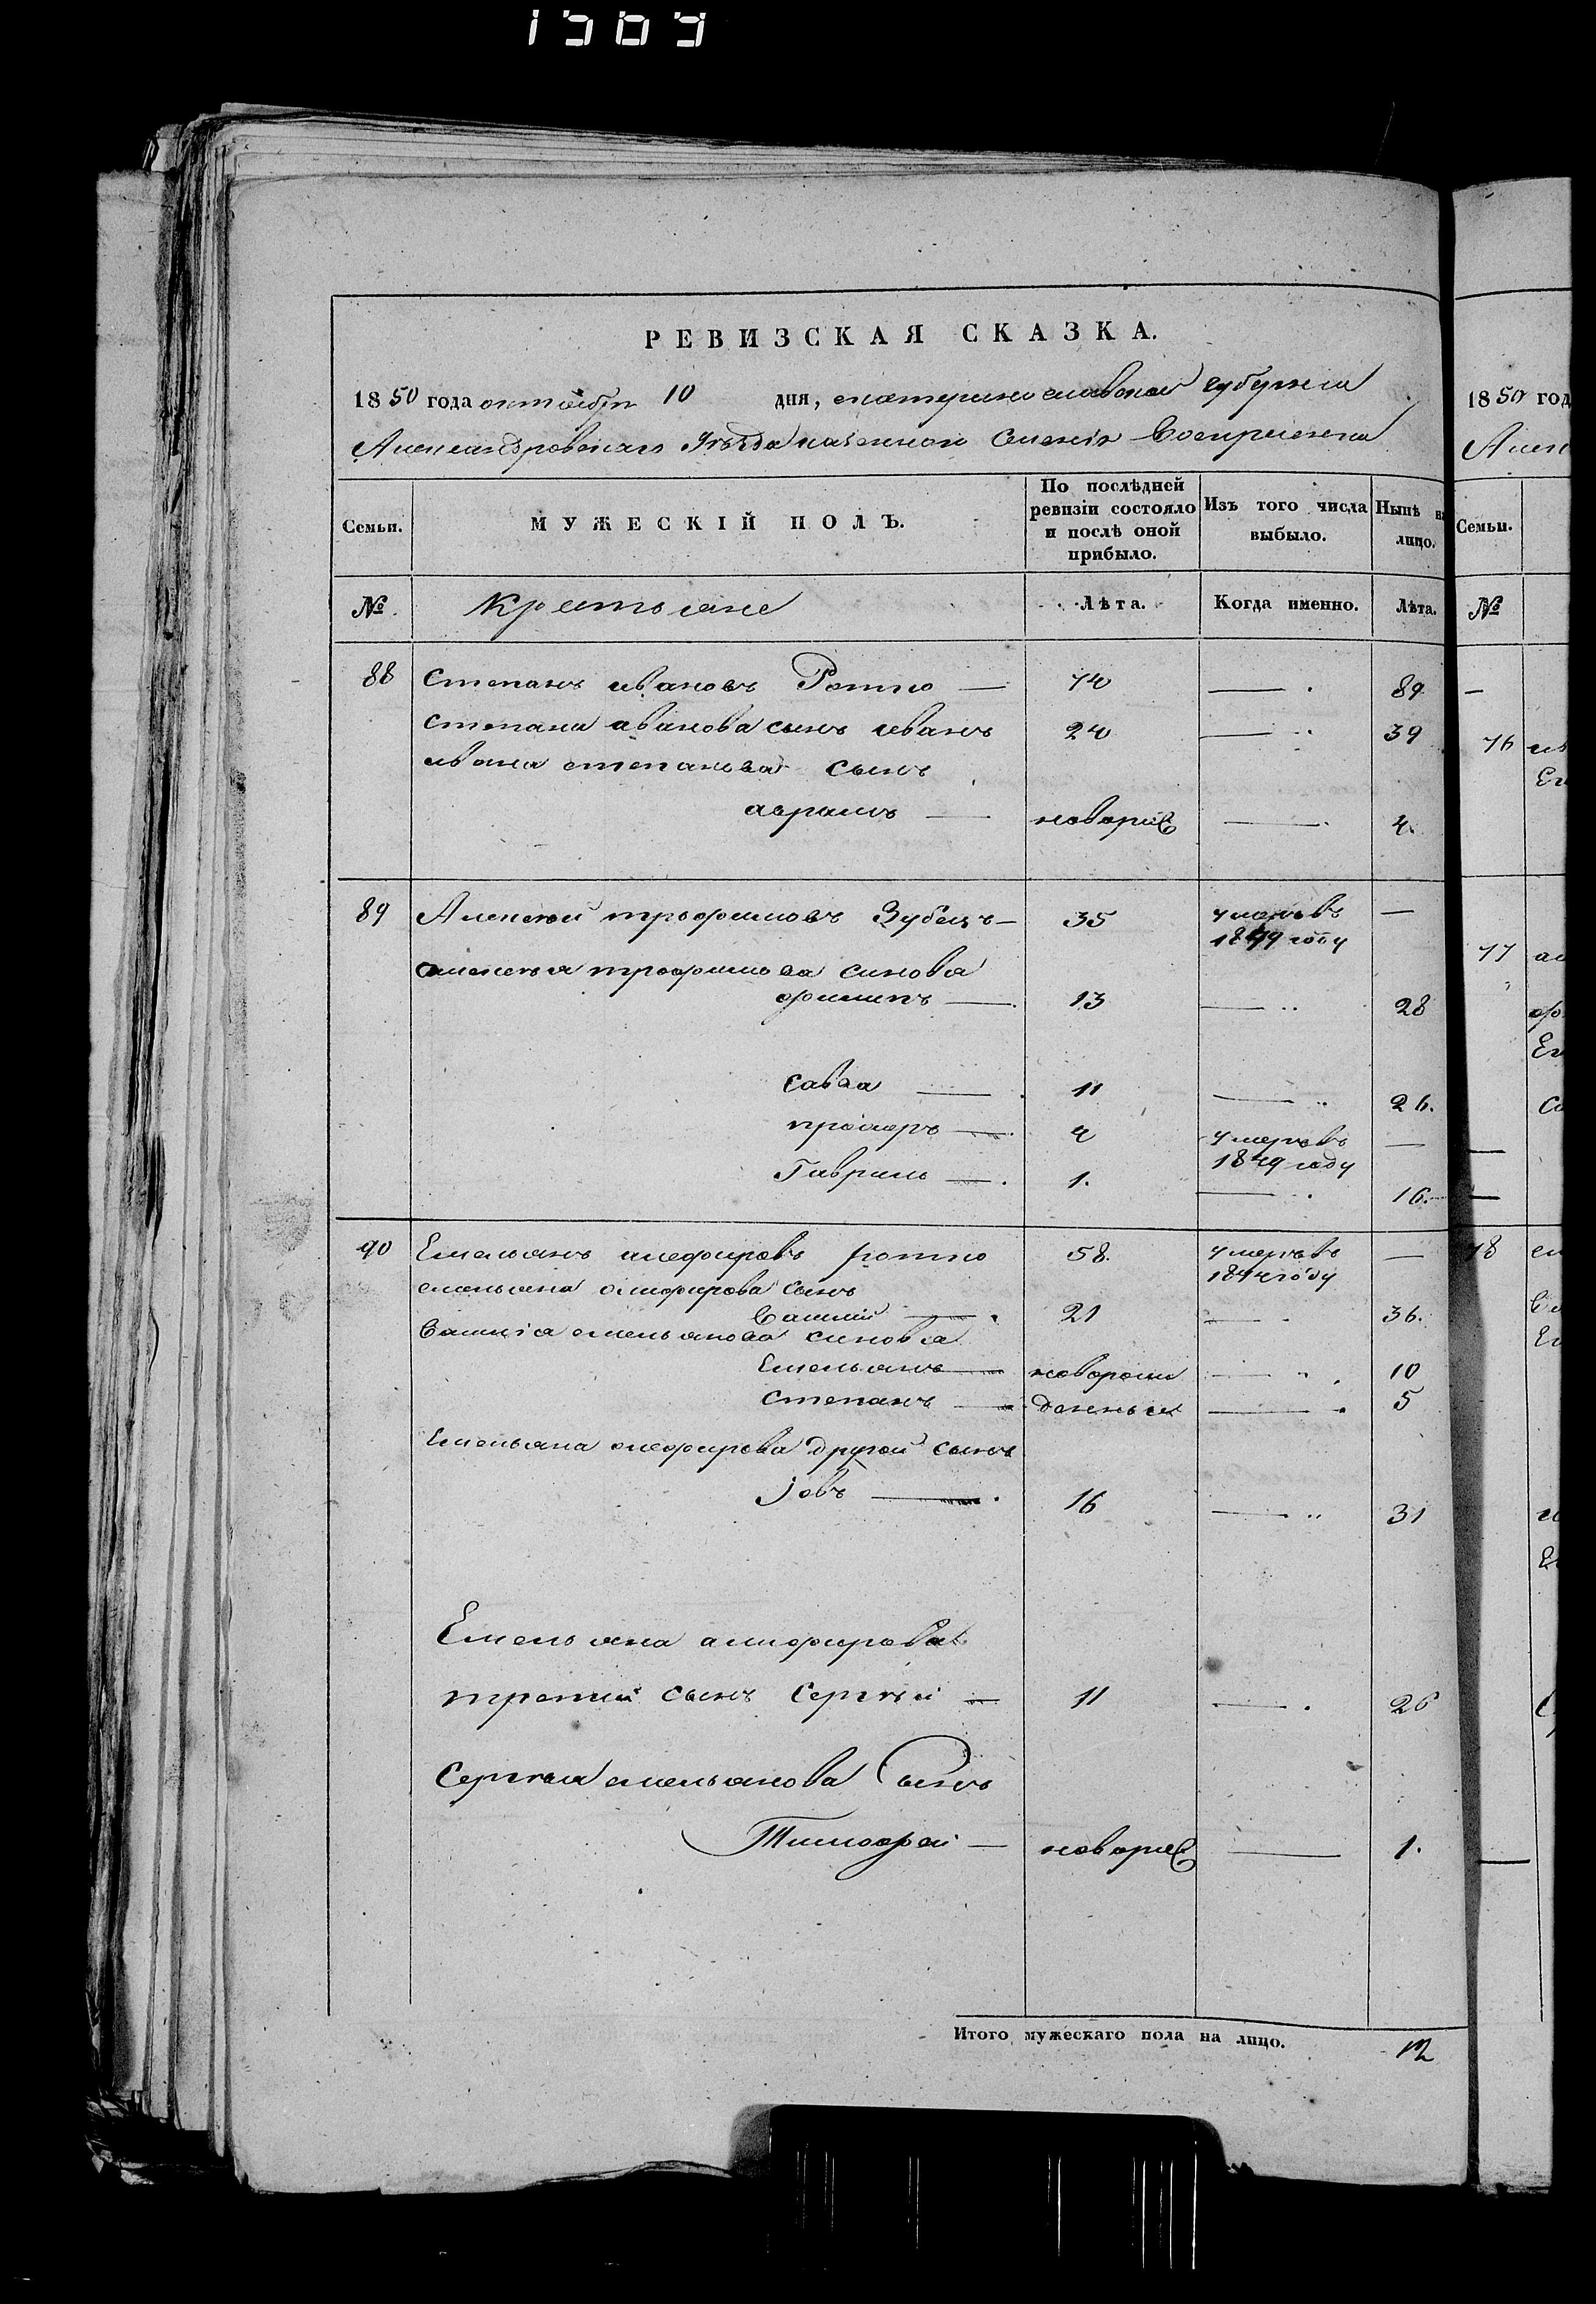 1509
РЕВИЗСКАЯ СКАЗКА.
1850 года октября 10 дня, екатеринославской губернии
Александровскаго Уѣзда казенной селенія Воскресенки
Семьи. МУЖЕСКІЙ ПОЛЪ. По послѣдней ревизіи состояло и послѣ оной прибыло. Изъ того числа выбыло. Нынѣ на лицо.
№ Крестьяне Лѣта. Когда именно. Лѣта.
88 Степанъ ивановъ Ротко — 74 — 89
Степана иванова сынъ иванъ 24 — 39
ивана степанова сынъ
аврамъ — новорож — 4.
89 Алексей трофимовъ Зубецъ — 35 умеръ въ 1849 году —
алексея трофимова синовя
филипъ — 13 — 28
Савва — 11 — 26.
прохоръ — 4 умеръ въ 1849 году —
Гаврило — 1. — 16.
90 Емельянъ алефировъ ротко 58. умеръ въ 1844 году —
емельяна алифирова сынъ
Василий — 21 — 36.
Василіа емельянова синовя
Емельянъ — новорож — 10
Степанъ — денные — 5
Емельяна алефирова другой сынъ
Іовъ — 16 — 31
Емельяна алифирова
третий сынъ Сергѣй — 11 — 26
Сергѣя емельянова Сынъ
Тимофей — новорож — 1.
Итого мужескаго пола на лицо. 12
1850 год
Алек
Семьи.
№
76
Ем
77
78